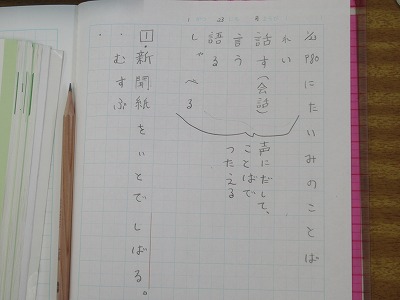 1/23 P80 にたいみのことば
れい
話す(会話)
言う
語る
しゃべる
声にだして、
ことばで
つたえる
1・新聞紙をいとでしばる。
・むすぶ